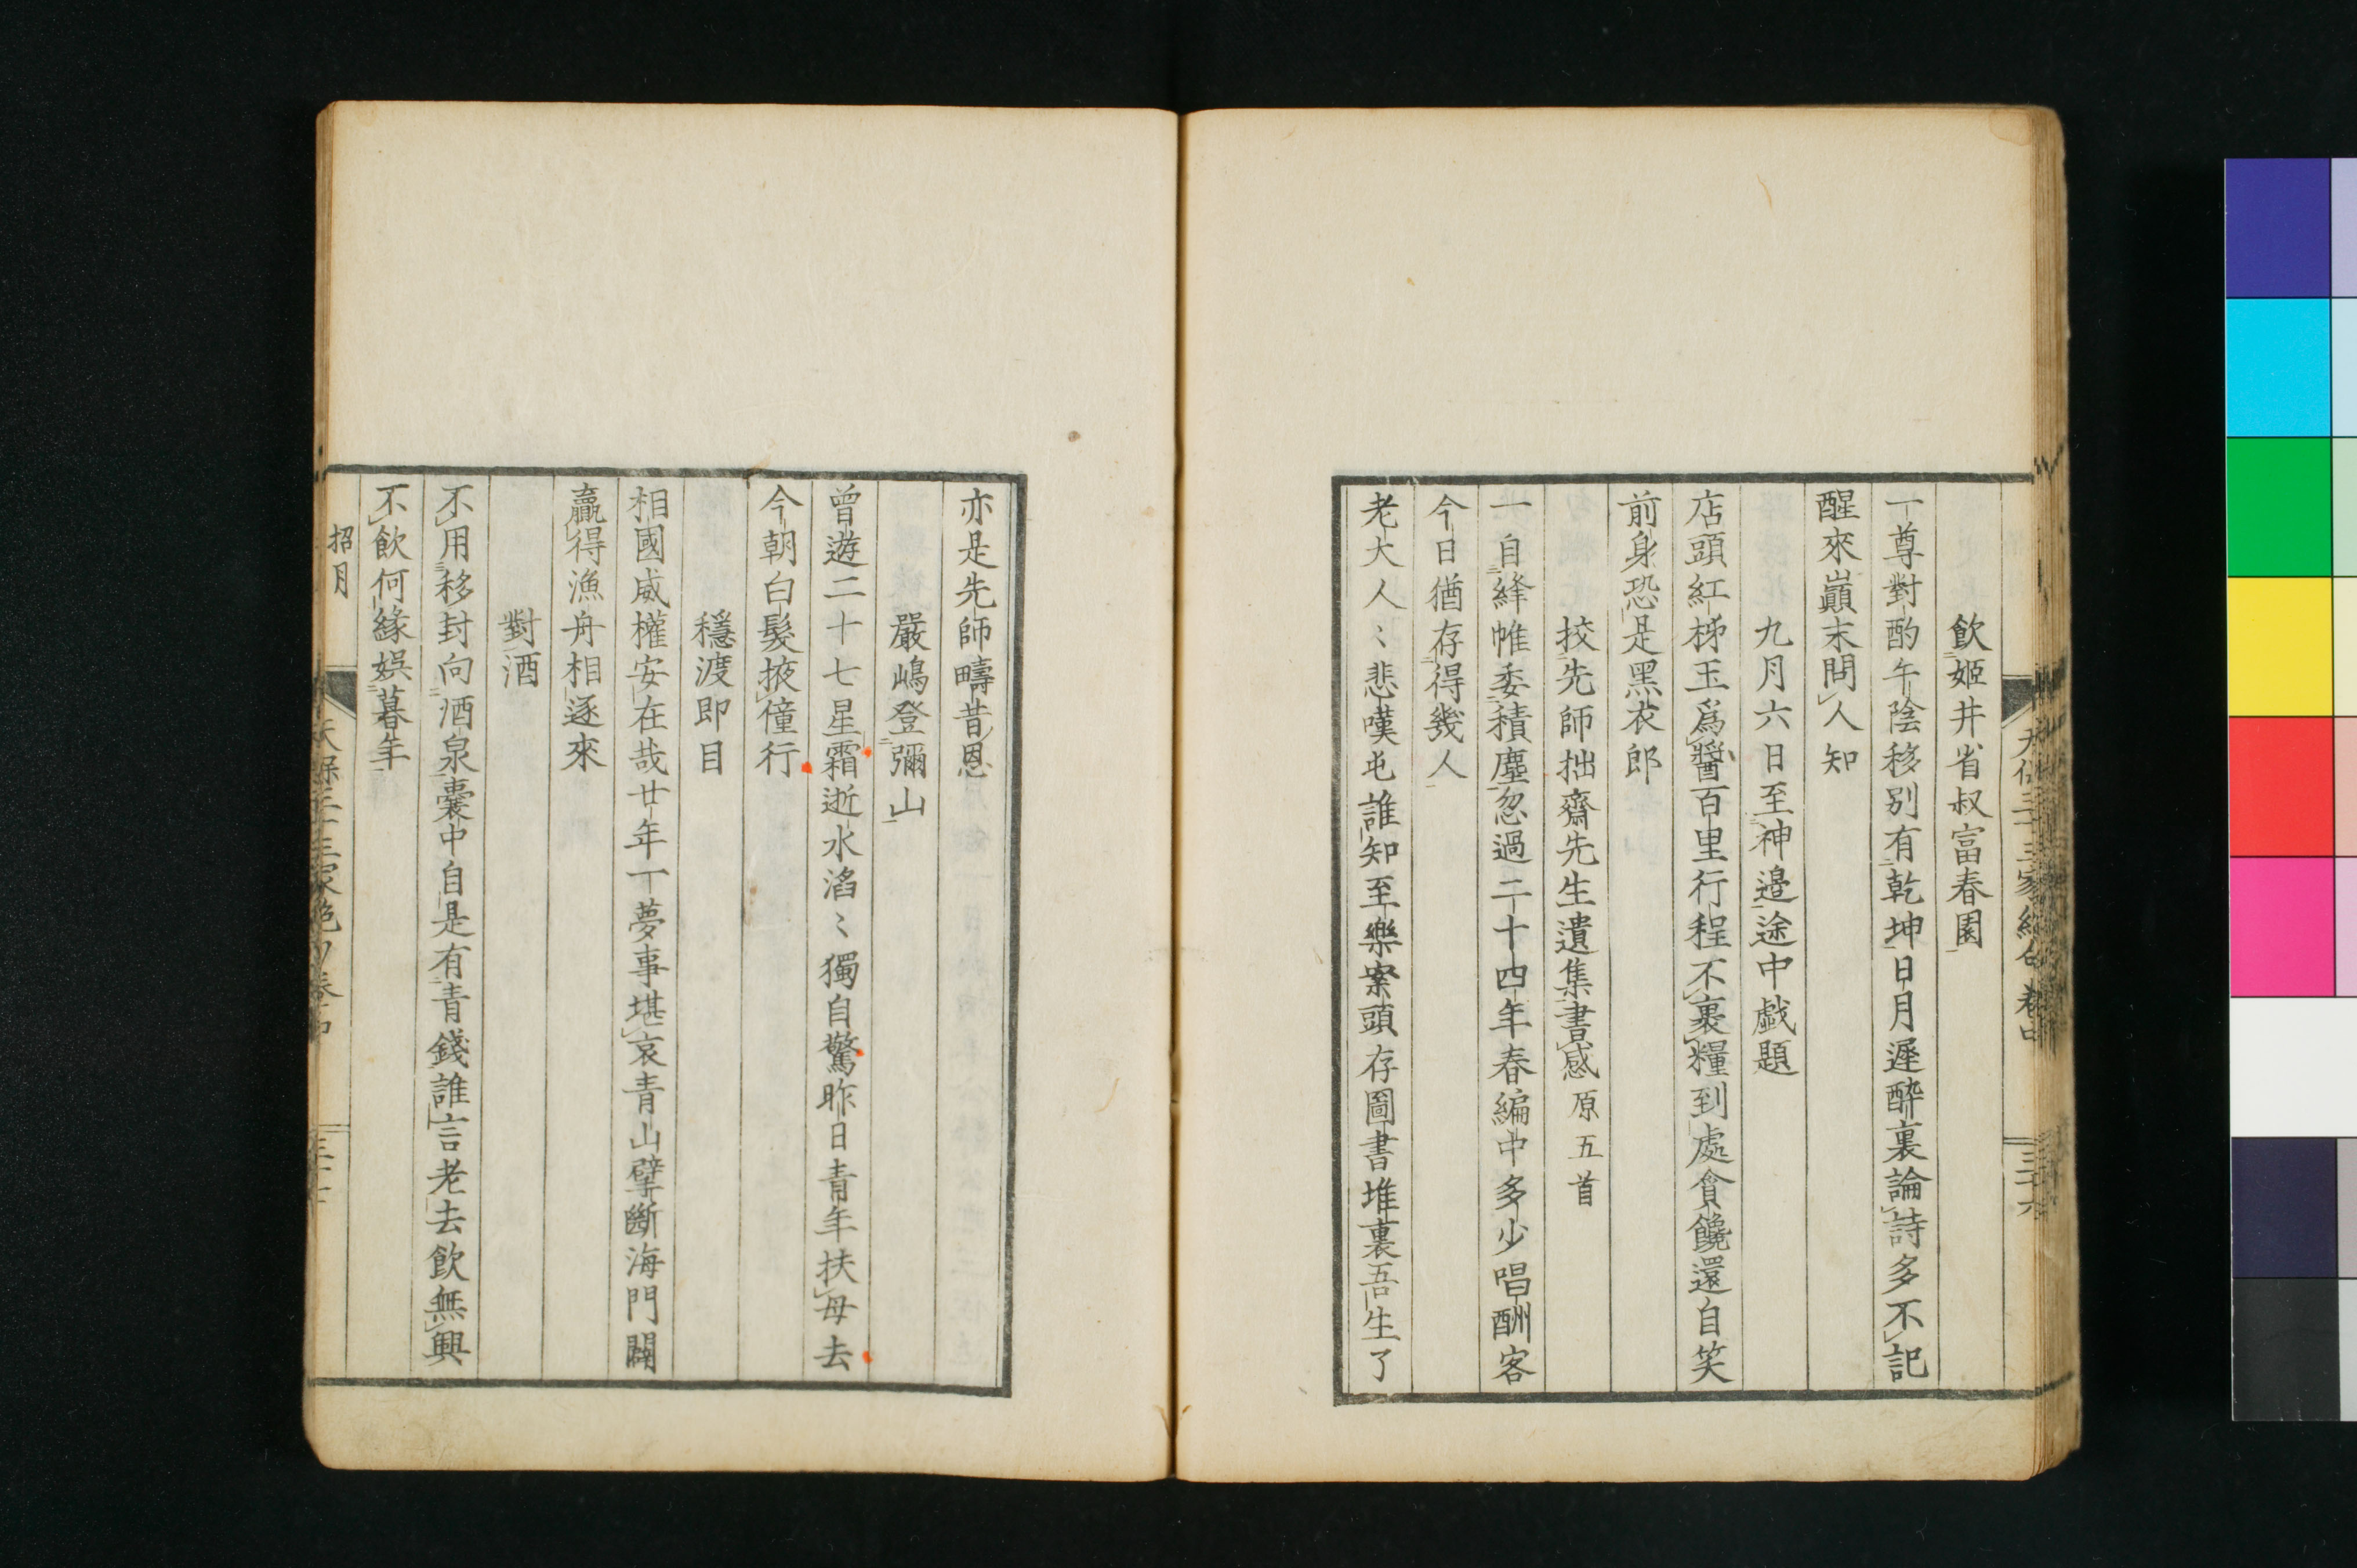 飲姬井省叔富春園
一尊對酌午陰移別有乾坤日月遲醉裏論詩多不記
醒來巔末問人知
九月六日至神邊途中戲題
店頭紅柹玉爲醬百里行程不裹糧到處貪饞還自笑
前身恐是黑衣郎
挍先師拙齋先生遺集書感原五首
一自絳帷委積塵忽過二十四年春編中多少唱酬客
今日猶存得幾人
老大人〻悲嘆屯誰知至樂案頭存圖書堆裏吾生了
亦是先師疇昔恩
嚴嶋登彌山
曾遊二十七星霜逝水滔〻獨自驚昨日青年扶母去
今朝白髮掖僮行
穩渡即目
相國威權安在哉廿年一夢事堪哀青山擘斷海門闢
贏得漁舟相逐來
對酒
不用移封向酒泉囊中自是有青錢誰言老去飲無興
不飲何緣娛暮年
招月